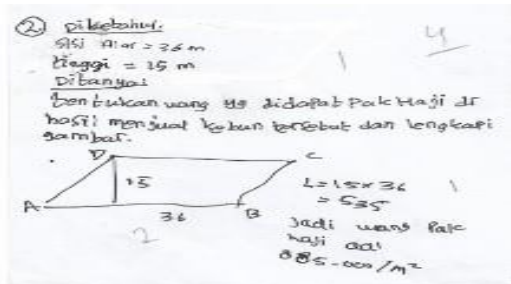 ② Diketahui.
Sisi Alas = 36 m
tinggi = 15 m
Ditanya:
tentukan uang yg didapat Pak Haji dr
hasil menjual kebun tersebut dan lengkapi
gambar.
D C
15
A 36 B
L = 15 x 36
= 535
Jadi uang Pak
haji adl
885.000/m²
1
4
1
2